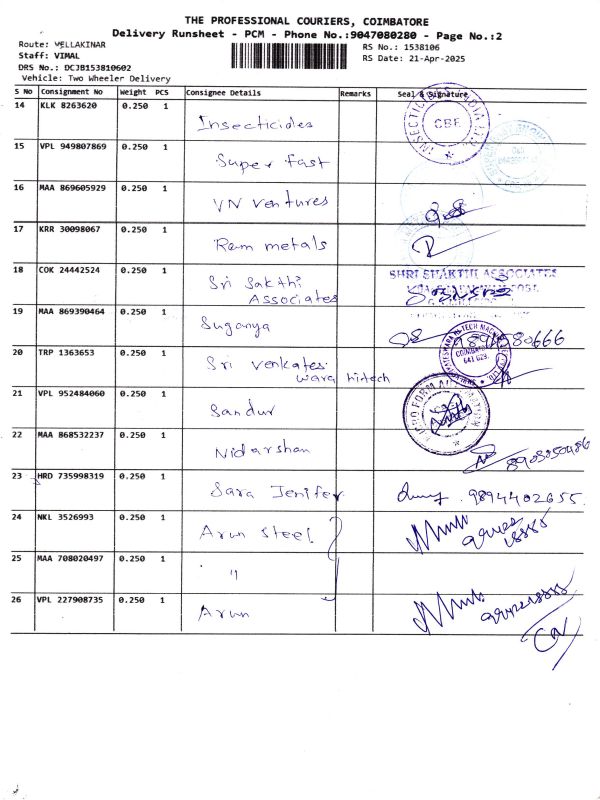 THE PROFESSIONAL COURIERS, COIMBATORE
Delivery Runsheet - PCM - Phone No.:9047080280 - Page No.:2
Route: VELLAKINAR
Staff: VIMAL
DRS No.: DCJB153810602
Vehicle: Two Wheeler Delivery
RS No.: 1538106
RS Date: 21-Apr-2025
S No Consignment No Weight PCS Consignee Details Remarks Seal & Signature
14 KLK 8263620 0.250 1 Insecticides
CBE
15 VPL 949807869 0.250 1 Super fast
16 MAA 869605929 0.250 1 VN ventures
17 KRR 30098067 0.250 1 Ram metals
18 COK 24442524 0.250 1 Sri Sakthi
Associates
SHRI SHAKTHI ASSOCIATES
19 MAA 869390464 0.250 1 Suganya
20 TRP 1363653 0.250 1 Sri venkates
wara hitech
COIMBATORE
641 029.
21 VPL 952484060 0.250 1 Sandur
22 MAA 868532237 0.250 1 Nidarshan
23 HRD 735998319 0.250 1 Sara Jenifer 9894402655
24 NKL 3526993 0.250 1 Arun Steel
25 MAA 708020497 0.250 1 "
26 VPL 227908735 0.250 1 Arun